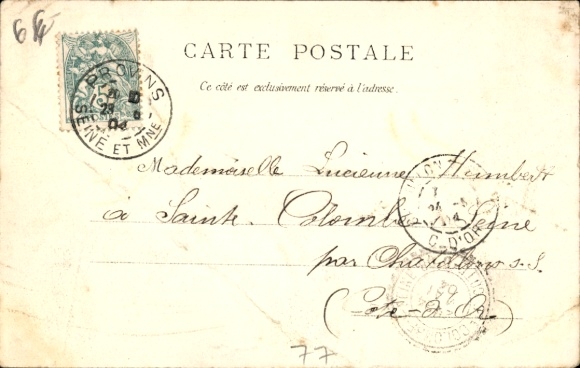 64
CARTE POSTALE
Ce côté est exclusivement réservé à l'adresse.
PROVINS
23
04
SEINE ET MNE
Mademoiselle Lucienne Humbert
à Sainte Colombe Seine
par Chatillon s. S.
(Côte-d'Or)
24
04
C. D'OR
77